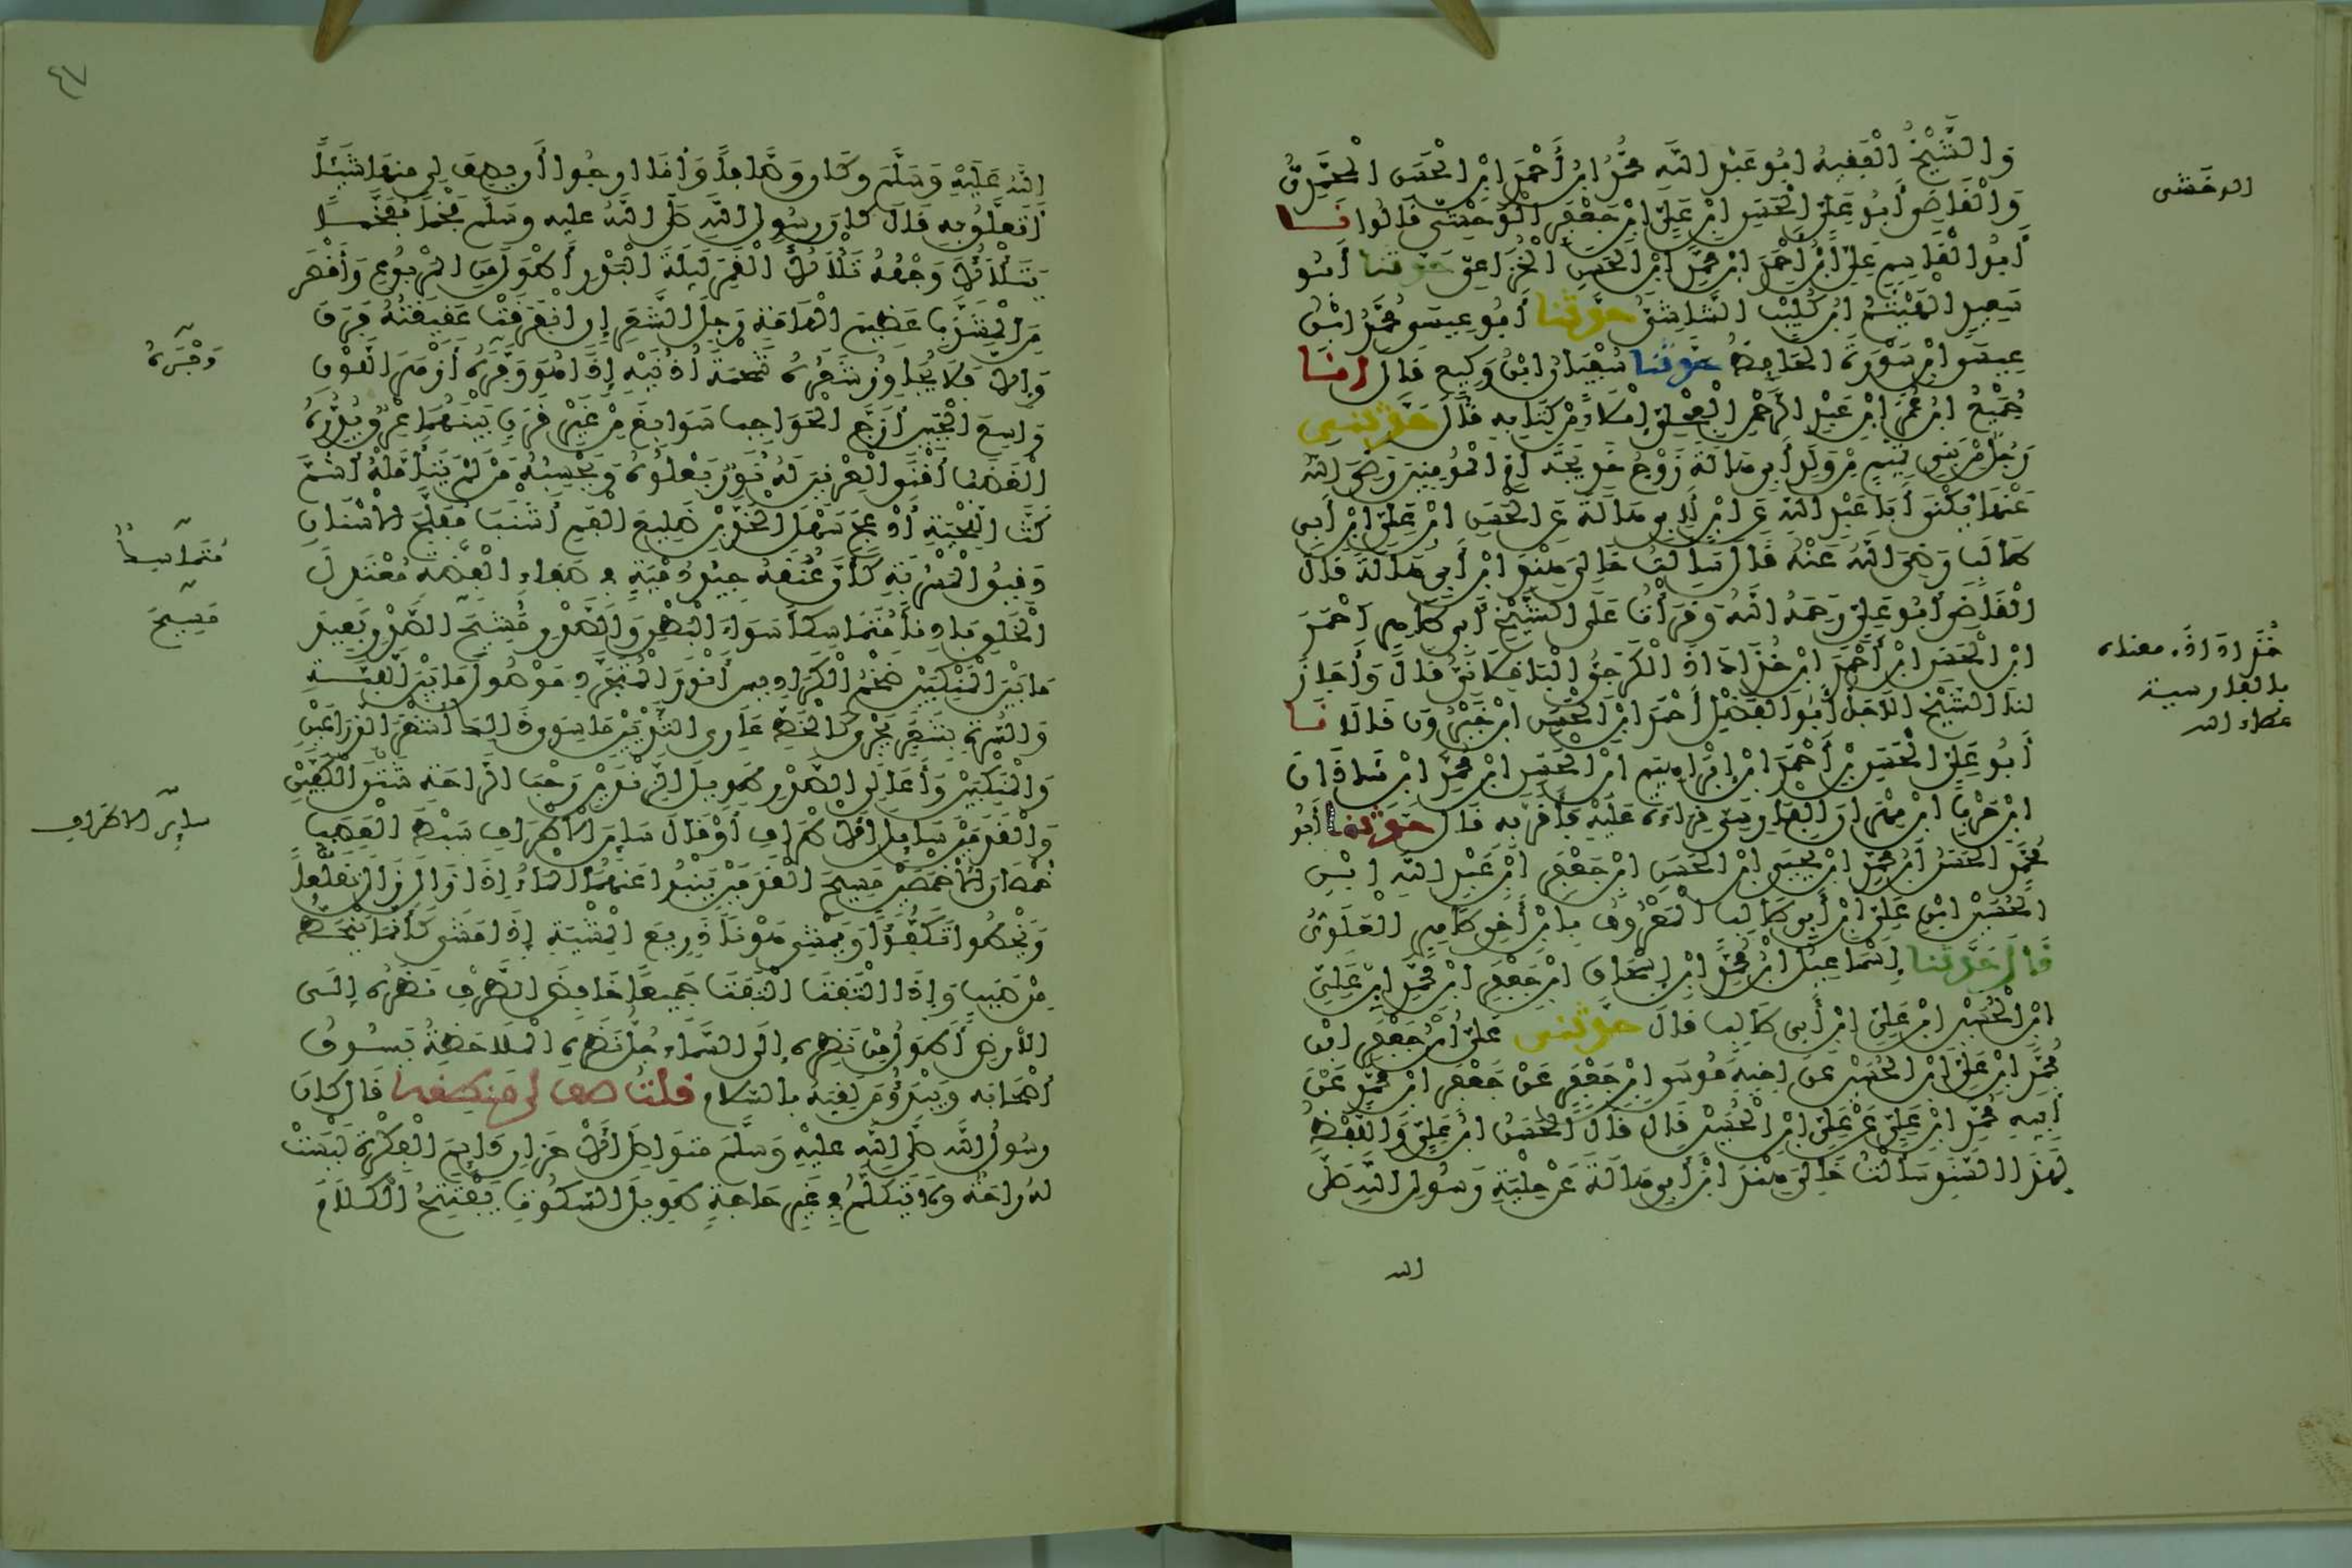 وَالشَّيْخُ الْفَقِيهُ أَبُو عَبْدِ اللَّهِ مُحَمَّدُ ابْنُ أَحْمَدَ ابْنِ الْحَسَنِ الْمُحَمَّدِيُّ
الوخشى
وَالْقَاضِي أَبُو عَلِيٍّ الْحَسَنِ ابْنِ عَلِيِّ ابْنِ جَعْفَرٍ الْوَخْشِيّ قَالُوا نـا
أَبُو الْقَاسِمِ عَلِيُّ ابْنُ أَحْمَدَ ابْنِ مُحَمَّدِ ابْنِ الْحَسَنِ الْخُزَاعِيّ حَدَّثَنَا أَبُو
سَعِيدٍ الْهَيْثَمُ ابْنُ كُلَيْبٍ الشَّاشِيُّ حَدَّثَنَا أَبُو عِيسَى مُحَمَّدُ ابْنُ
عِيسَى ابْنِ سَوْرَةَ الْحَافِظُ حَدَّثَنَا سُفْيَانُ ابْنُ وَكِيعٍ قَالَ انـا
جُمَيْعُ ابْنُ عُمَرَ ابْنِ عَبْدِ الرَّحْمَنِ الْعِجْلِيّ إِمْلَاءً مِنْ كِتَابِهِ قَالَ حَدَّثَنِي
رَجُلٌ مِنْ بَنِي تَمِيمٍ مِنْ وَلَدِ أَبِي هَالَةَ زَوْجِ خَدِيجَةَ أُمِّ الْمُؤْمِنِينَ رَضِيَ اللَّهُ
عَنْهَا يُكْنَى أَبَا عَبْدِ اللَّهِ عَنِ ابْنٍ لِأَبِي هَالَةَ عَنِ الْحَسَنِ ابْنِ عَلِيِّ ابْنِ أَبِي
طَالِبٍ رَضِيَ اللَّهُ عَنْهُ قَالَ سَأَلْتُ خَالِي هِنْدَ ابْنَ أَبِي هَالَةَ قَالَ
الْقَاضِي أَبُو عَلِيٍّ رَحِمَهُ اللَّهُ وَقَرَأْتُ عَلَى الشَّيْخِ أَبِي طَاهِرٍ أَحْمَدَ
ابْنِ الْحَسَنِ ابْنِ أَحْمَدَ ابْنِ خُذَادَاذَ الْكَرَجِيِّ الْبَاقِلَانِيّ قَالَ وَأَجَازَ
خُذَادَاذَ. معناه
بالفارسية
عطاء الله
لَنَا الشَّيْخُ الأَجَلُّ أَبُو الْفَضْلِ أَحْمَدُ ابْنُ الْحَسَنِ ابْنِ خَيْرُونَ قَالَا نـا
أَبُو عَلِيٍّ الْحَسَنِ بْنِ أَحْمَدَ ابْنِ إِبْرَاهِيمَ ابْنِ الْحَسَنِ ابْنِ مُحَمَّدِ ابْنِ شَاذَانَ
ابْنِ حَرْبٍ ابْنِ مِهْرَانَ الْفَارِسِيّ قِرَاءَةً عَلَيْهِ فَأَقَرَّ بِهِ قَالَ حَدَّثَنَا أَبُو
مُحَمَّدٍ الْحَسَنُ ابْنُ مُحَمَّدِ ابْنِ يَحْيَى ابْنِ الْحَسَنِ ابْنِ جَعْفَرِ ابْنِ عَبْدِ اللَّهِ ابْنِ
الْحُسَيْنِ ابْنِ عَلِيِّ ابْنِ أَبِي طَالِبٍ الْمَعْرُوفُ بِابْنِ أَخِي طَاهِرٍ الْعَلَوِيّ
قَالَ حَدَّثَنَا إِسْمَاعِيلُ ابْنُ مُحَمَّدِ ابْنِ إِسْحَاقَ ابْنِ جَعْفَرِ ابْنِ مُحَمَّدِ ابْنِ عَلِيِّ
ابْنِ الْحُسَيْنِ ابْنِ عَلِيِّ ابْنِ أَبِي طَالِبٍ قَالَ حَدَّثَنِي عَلِيُّ ابْنُ جَعْفَرِ ابْنِ
مُحَمَّدِ ابْنِ عَلِيِّ ابْنِ الْحُسَيْنِ عَنْ أَخِيهِ مُوسَى ابْنِ جَعْفَرٍ عَنْ جَعْفَرِ ابْنِ مُحَمَّدٍ عَنْ
أَبِيهِ مُحَمَّدِ ابْنِ عَلِيٍّ عَنْ عَلِيِّ ابْنِ الْحُسَيْنِ قَالَ قَالَ الْحَسَنُ ابْنُ عَلِيٍّ وَاللَّفْظُ
لِهَذَا السَّنَدِ سَأَلْتُ خَالِي هِنْدَ ابْنَ أَبِي هَالَةَ عَنْ حِلْيَةِ رَسُولِ اللَّهِ صَلَّى
الله
٤٧
اللَّهُ عَلَيْهِ وَسَلَّمَ وَكَانَ وَصَّافًا وَأَنَا أَرْجُوا أَنْ يَصِفَ لِي مِنْهَا شَيْئًا
أَتَعَلَّقُ بِهِ قَالَ كَانَ رَسُولُ اللَّهِ صَلَّى اللَّهُ عليه وَسَلَّمَ فَخْمًا مُفَخَّمًا
يَتَلَأْلَأُ وَجْهُهُ تَلَأْلُؤَ الْقَمَرِ لَيْلَةَ الْبَدْرِ أَطْوَلَ مِنَ الْمَرْبُوعِ وَأَقْصَرَ
مِنَ الْمُشَذَّبِ عَظِيمَ الْهَامَةِ رَجِلَ الشَّعَرِ إِنِ انْفَرَقَتْ عَقِيقَتُهُ فَرَقَ
وَإِلَّا فَلَا يُجَاوِزُ شَعْرُهُ شَحْمَةَ أُذُنَيْهِ إِذَا هُوَ وَفَّرَهُ أَزْهَرَ اللَّوْنِ
وَاسِعَ الْجَبِينِ أَزَجَّ الْحَوَاجِبِ سَوَابِغَ مِنْ غَيْرِ قَرَنٍ بَيْنَهُمَا عِرْقٌ يُدِرُّهُ
الْغَضَبُ أَقْنَى الْعِرْنِينِ لَهُ نُورٌ يَعْلُوهُ وَيَحْسِبُهُ مَنْ لَمْ يَتَأَمَّلْهُ أَشَمَّ
كَثَّ اللِّحْيَةِ أَدْعَجَ سَهْلَ الْخَدَّيْنِ ضَلِيعَ الْفَمِ أَشْنَبَ مُفَلَّجَ الْأَسْنَانِ
مُتَمَاسِكٌ
دَقِيقَ الْمَسْرُبَةِ كَأَنَّ عُنُقَهُ جِيدُ دُمْيَةٍ فِي صَفَاءِ الْفِضَّةِ مُعْتَدِلَ
مَسِيحَ
الْخَلْقِ بَادِنًا مُتَمَاسِكًا سَوَاءَ الْبَطْنِ وَالصَّدْرِ مُشِيحَ الصَّدْرِ بَعِيدَ
مَا بَيْنَ الْمَنْكِبَيْنِ ضَخْمَ الْكَرَادِيسِ أَنْوَرَ الْمُتَجَرَّدِ مَوْصُولَ مَا بَيْنَ اللَّبَّةِ
وَالسُّرَّةِ بِشَعَرٍ يَجْرِي كَالْخَطِّ عَارِيَ الثَّدْيَيْنِ مَا سِوَى ذَلِكَ أَشْعَرَ الذِّرَاعَيْنِ
وَالْمَنْكِبَيْنِ وَأَعَالِي الصَّدْرِ طَوِيلَ الزَّنْدَيْنِ رَحْبَ الرَّاحَةِ شَثْنَ الْكَفَّيْنِ
سايرَ الاطراف
وَالْقَدَمَيْنِ سَائِلَ الْأَطْرَافِ أَوْ قَالَ سَايِرَ الْأَطْرَافِ سَبْطَ الْقَصَبِ
خُمْصَانَ الْأَخْمَصَيْنِ مَسِيحَ الْقَدَمَيْنِ يَنْبُوا عَنْهُمَا الْمَاءُ إِذَا زَالَ زَالَ تَقَلُّعًا
وَيَخْطُوا تَكَفُّؤًا وَيَمْشِي هَوْنًا ذَرِيعَ الْمِشْيَةِ إِذَا مَشَى كَأَنَّمَا يَنْحَطُّ
مِنْ صَبَبٍ وَإِذَا الْتَفَتَ الْتَفَتَ جَمِيعًا خَافِضَ الطَّرْفِ نَظَرُهُ إِلَى
الْأَرْضِ أَطْوَلُ مِنْ نَظَرِهِ إِلَى السَّمَاءِ جُلُّ نَظَرِهِ الْمُلَاحَظَةُ يَسُوقُ
أَصْحَابَهُ وَيَبْدَؤُ مَنْ لَقِيَهُ بِالسَّلَامِ قلتُ صف لى منطقه قَالَ كَانَ
رسُولُ اللَّهِ صَلَّى اللَّهُ عليْهِ وَسَلَّمَ مُتَوَاصِلَ الْأَحْزَانِ دَايِمَ الْفِكْرَةِ لَيْسَتْ
لَهُ رَاحَةٌ وَلَا يَتَكَلَّمُ فِي غَيْرِ حَاجَةٍ طَوِيلَ السُّكُوتِ يَفْتَتِحُ الْكَلَامَ